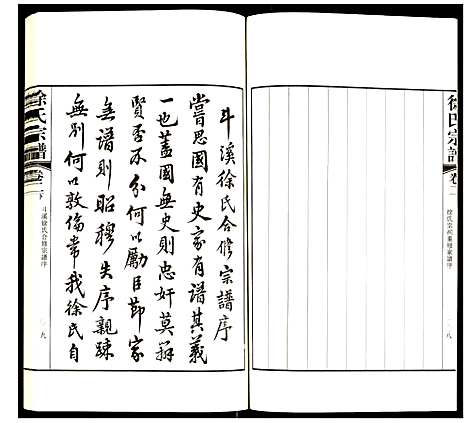 徐氏宗譜
卷一
徐氏宗祠重修宗譜序
八
斗溪徐氏合修宗譜序
嘗思國有史家有譜其義
一也蓋國無史則忠奸莫辨
賢否不分何以勵臣節家
無譜則昭穆失序親疎
無別何以敦倫常我徐氏自
徐氏宗譜
卷一
斗溪徐氏合修宗譜序
九